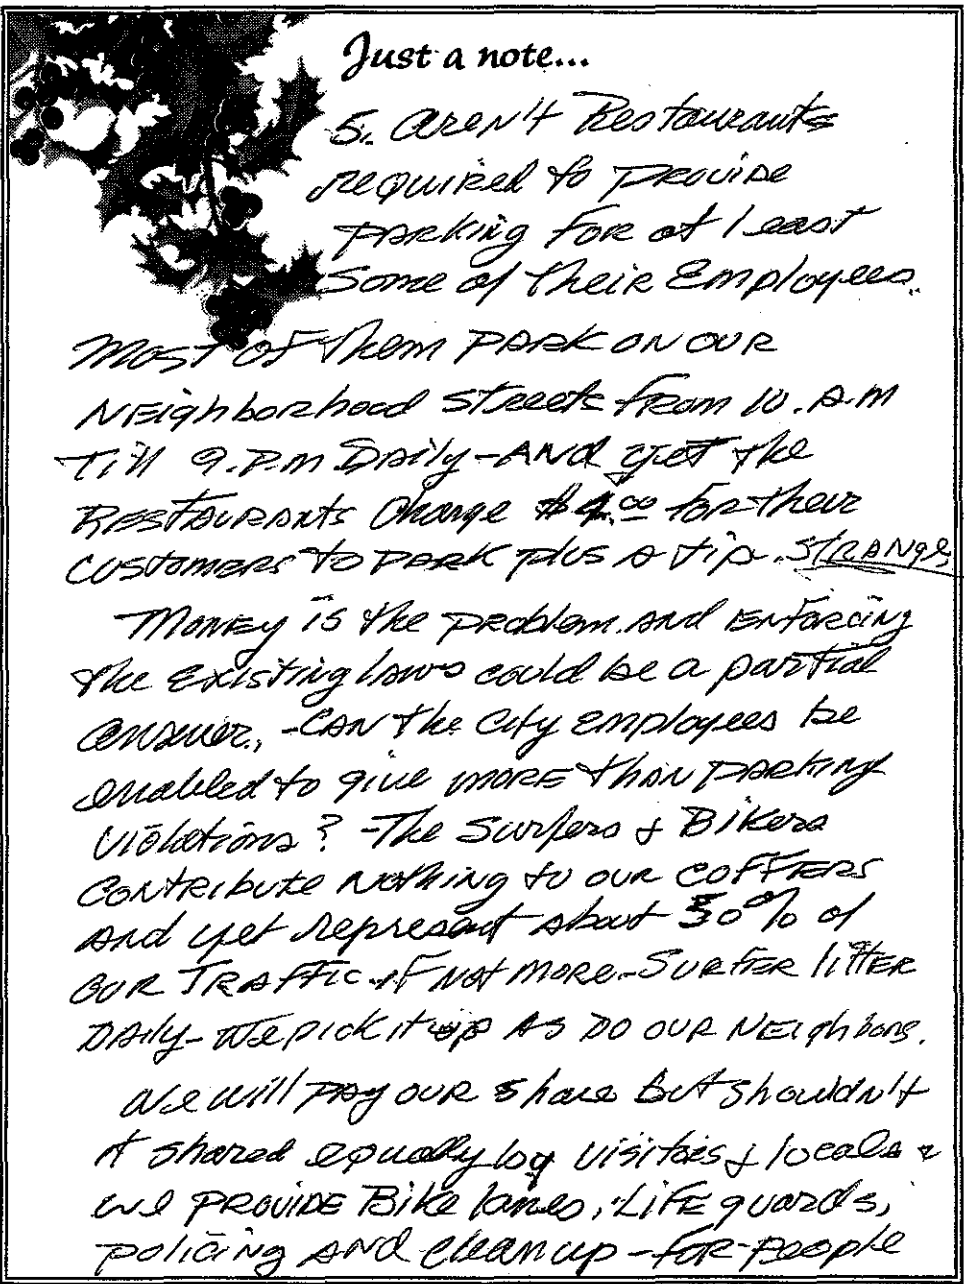 Just a note...
5. Aren't Restaurants
required to provide
parking for at least
some of their Employees.
Most of them park on our
Neighborhood streets from 10. A.M
Till 9. P.m Daily - And yet the
Restaurants charge $4.00 for their
customers to park plus a tip. Strange,
Money is the problem. And enforcing
the existing laws could be a partial
answer, - Can the City employees be
enabled to give more than parking
violations? - The Surfers & Bikers
contribute nothing to our coffers
and yet represent about 50% of
our Traffic. If not more. - Surfer litter
Daily - We pick it up As Do our Neighbors.
We will pay our share but shouldn't
it shared equally by visitors & locals
we provide Bike lanes, Life guards,
policing and clean up - for people